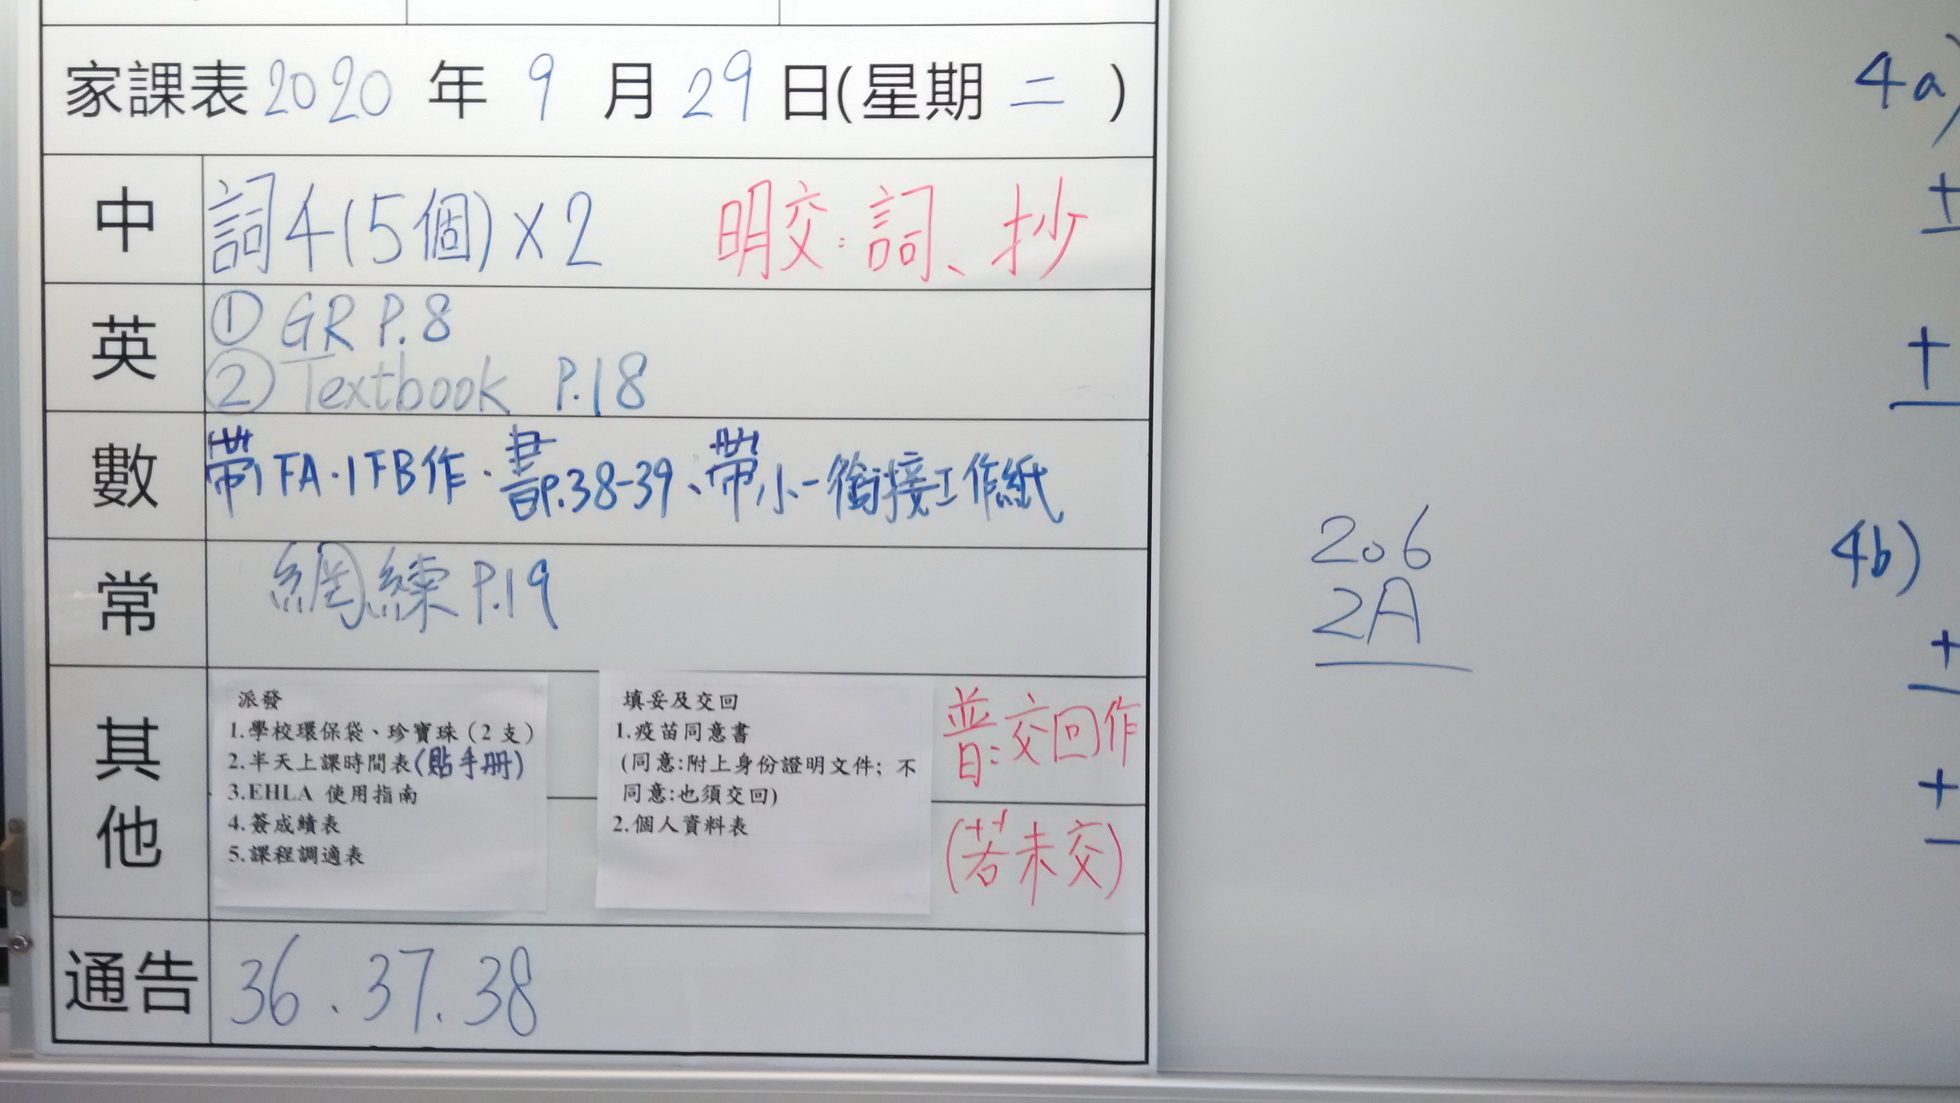 家課表 2020 年 9 月 29 日(星期 二 )
中 詞4(5個)×2 明交:詞、抄
英 ① GR P.8
② Textbook P.18
數 帶1FA.1FB作.書P.38-39、帶小一銜接工作紙
常 網練P.19
其他
派發
1.學校環保袋、珍寶珠(2 支)
2.半天上課時間表(貼手冊)
3.EHLA 使用指南
4.簽成績表
5.課程調適表
填妥及交回
1.疫苗同意書
(同意:附上身份證明文件; 不
同意:也須交回)
2.個人資料表
普:交回作
(若未交)
通告 36.37.38
206
2A
4a)
+
+
4b)
+
+